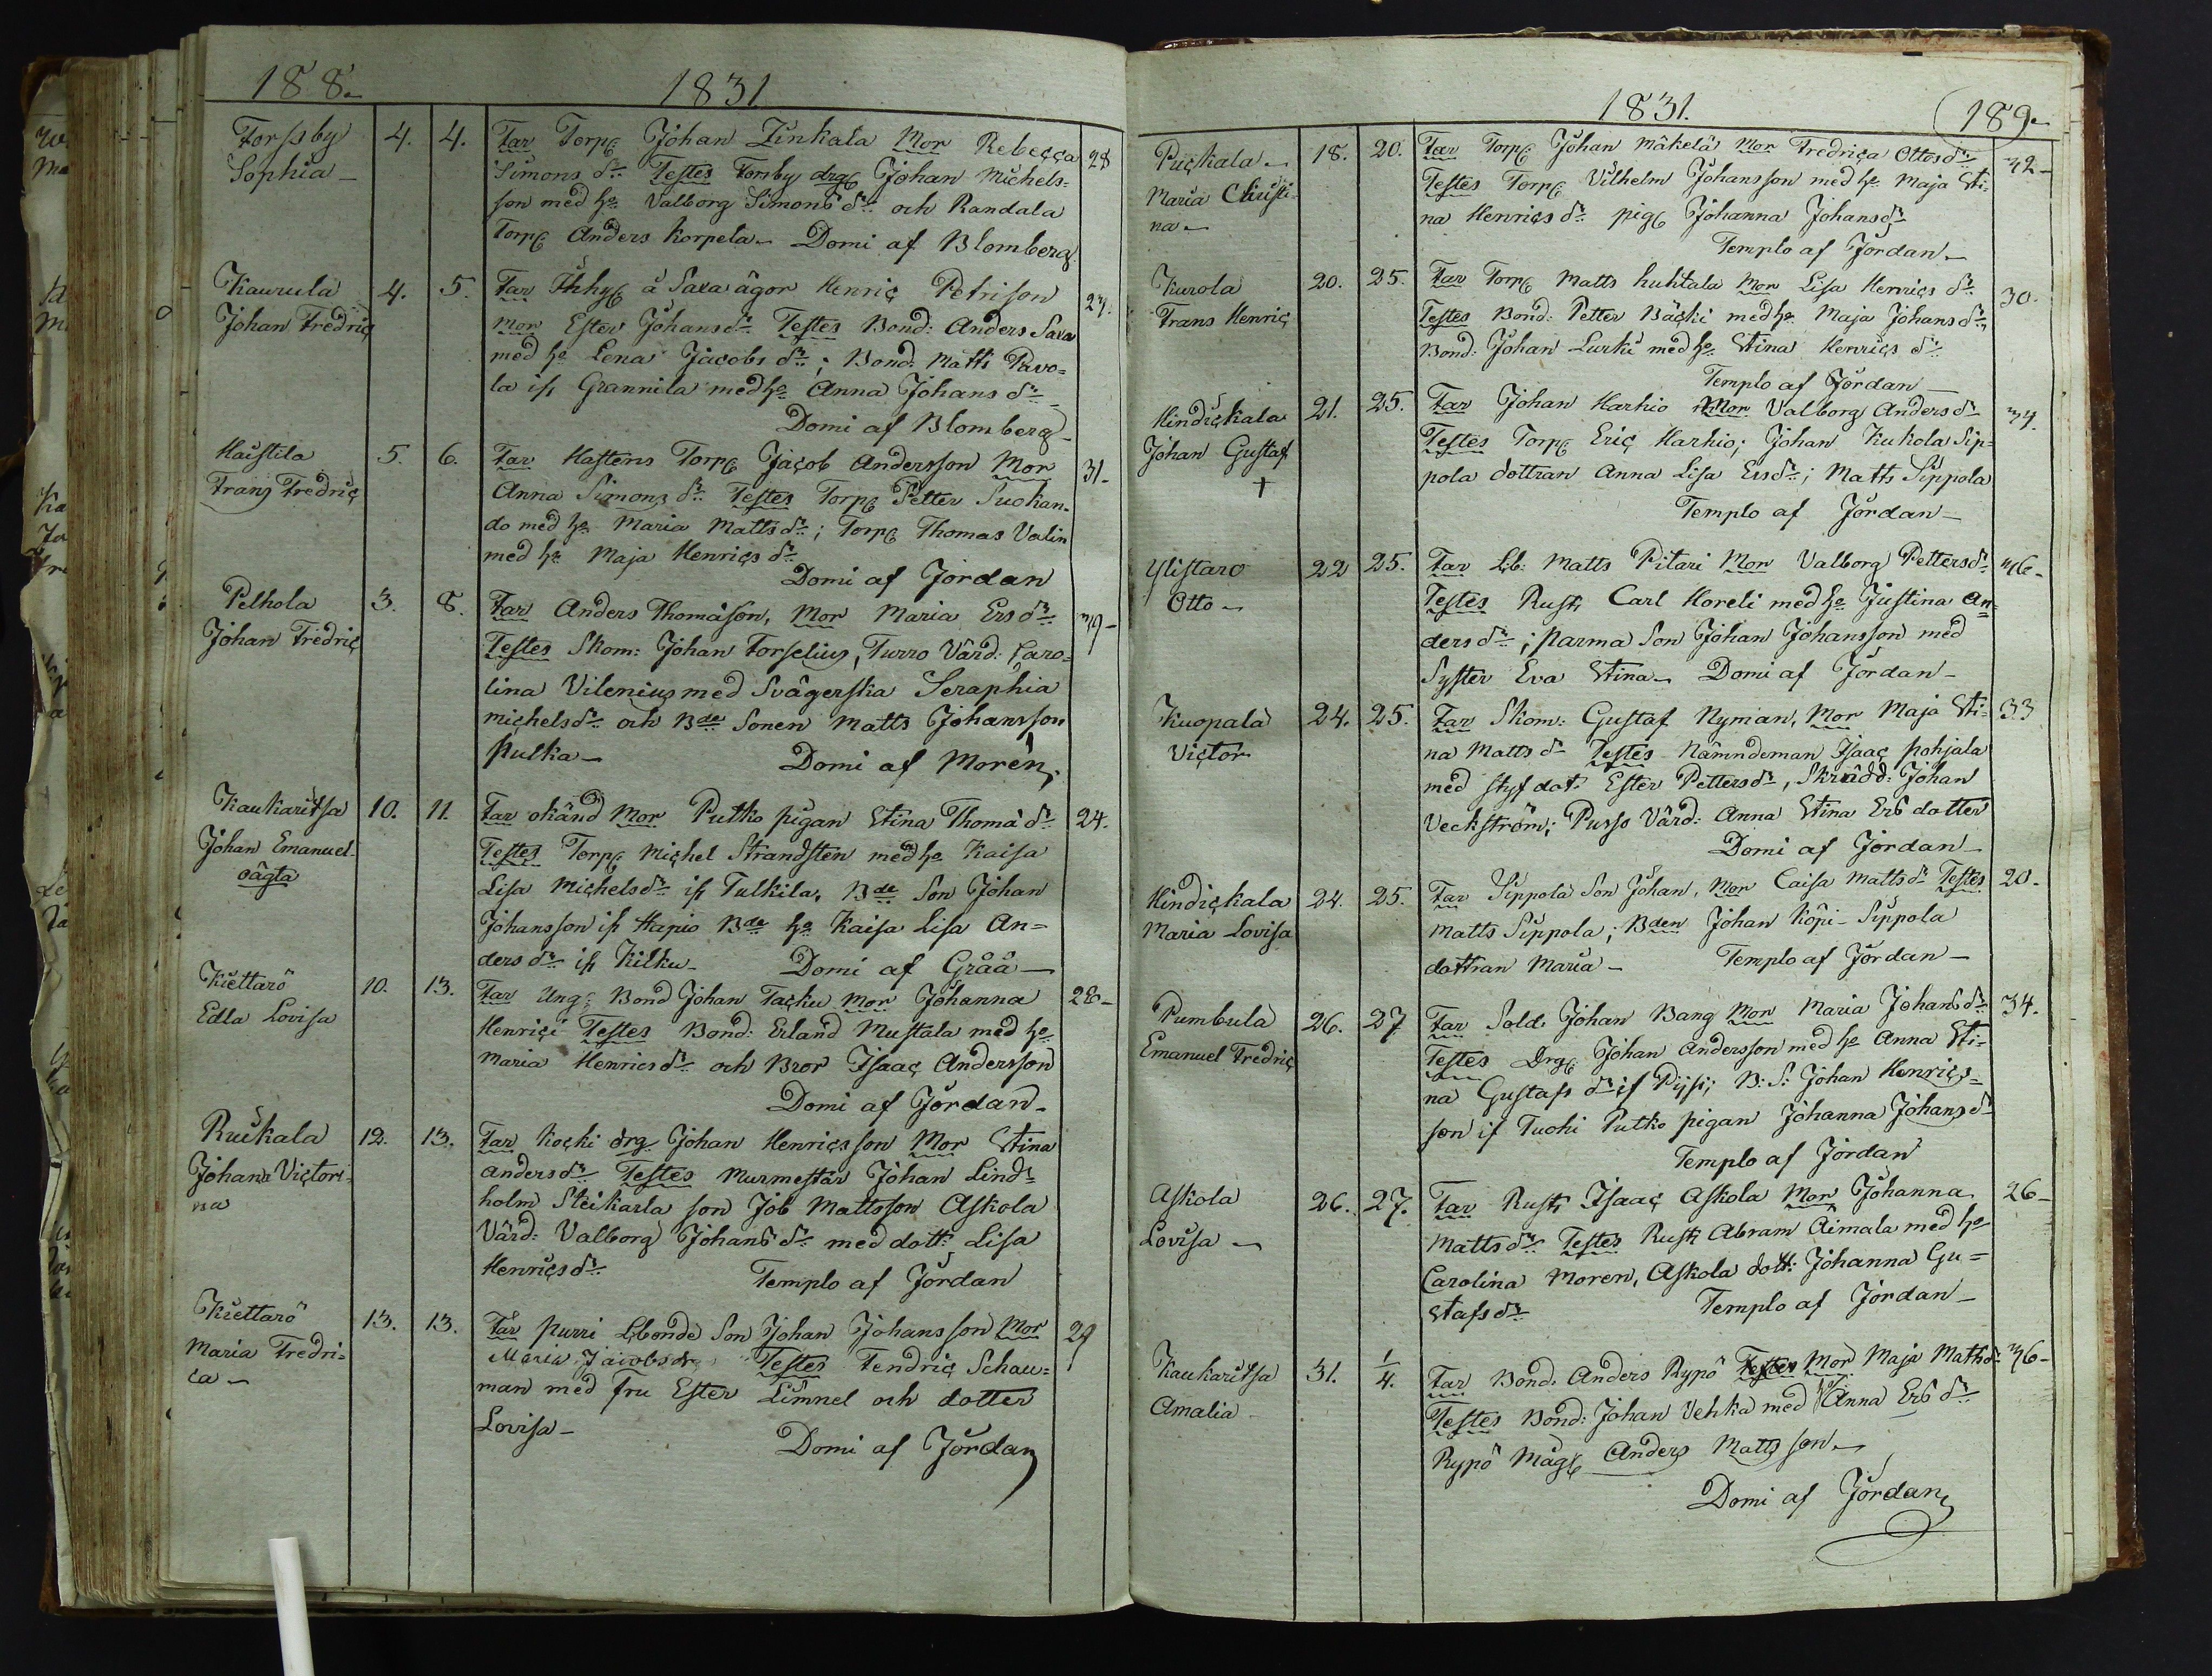 188.
1831
Forssby 4. 4. Far Torp Johan Zinkala Mor Rebecca 28
Sophia Simons dr. Testes Fomby drg Johan Michels=
son med h. Valborg Simons dr och Randala
Torp Anders Korpela Domi af Blomberg
Kaurula 4. 5. Far å Saxa ägor Henric Petrison 27.
Johan Fredric Mor Ester Johans dr Testes Bond: Anders Saxa
med h. Lena Jacobs dr; Bond: Matts Pavo=
la ifr Grannila med h. Anna Johans dr
Domi af Blomberg
Haistila 5. 6. Far Hastens Torp Jacob Andersson Mor 31
Frans Fredric Anna Simons dr. Testes Torp Petter Suokan=
do med h. Maria Matts dr; Torp Thomas Valin
med h. Maja Henrics dr
Domi af Jordan
Pelhola 3. 8. Far Anders Thomason, Mor Maria Ers dr 39
Johan Fredric Testes Skom: Johan Forselius, Turro Värd: Caro=
lina Vilenius med Svägerska Seraphia
Michels dr och Bde Sonen Matts Johansson
Pulka Domi af Morén
Kaukaritsa 10. 11. Far okänd Mor Putko pigan Stina Thomä dr 24.
Johan Emanuel Testes Torp Michel Strandsten med h. Kaisa
oägta Lisa Michels dr ifr Tulkila, Bde Son Johan
Johansson ifr Hapio Bde h. Kaisa Lisa An=
ders dr ifr Kilku Domi af Gråå
Kiettarö 10. 13. Far Ung: Bond Johan Tacku Mor Johanna 28
Edla Lovisa Henrici Testes Bond: Erland Mustala med h.
Maria Henrics dr och Bror Isaac Andersson
Domi af Jordan
Ruskala 12. 13. Far Kocki drg Johan Henricsson Mor Stina
Johana Victori= Anders dr Testes Murmestar Johan Lind=
na holm Steikarla son Job Mattsson Askola
Värd: Valborg Johans dr med dott: Lisa
Henrics dr Templo af Jordan
Kiettarö 13. 13. Far Purri Lbonde Son Johan Johansson Mor 29
Maria Fredri= Maria Jacobs dr Testes Fendric Schau=
ca man med fru Ester Limnel och dotter
Lovisa
Domi af Jordan
1831.
189
Puckala 18. 20. Far Torp Johan Mäkelä Mor Fredrica Ottos dr 42
Maria Christi= Testes Torp Vilhelm Johansson med h. Maja Sti=
na na Henrics dr pig Johanna Johans dr
Templo af Jordan
Kurola 20. 25. Far Torp Matts Huhtala Mor Lisa Henrics dr 30.
Frans Henric Testes Bond: Petter Bäcki med h. Maja Johans dr,
Bond: Johan Lurki med h. Stina Henrics dr
Templo af Jordan
Hindickala 21. 25. Far Johan Harhio Mor Valborg Anders dr 34.
Johan Gustaf Testes Torp Eric Harhio; Johan Kukola Sip=
+ pola dottran Anna Lisa Ers dr; Matts Sippola
Templo af Jordan
Ylistaro 22 25. Far Lb: Matts Pitari Mor Valborg Petters dr 36
Otto Testes Rust Carl Horeli med h. Justina An=
ders dr; Parma Son Johan Johansson med
Syster Eva Stina Domi af Jordan
Kuopala 24. 25. Far Skom: Gustaf Nyman, Mor Maja Sti= 33
Victor na Matts dr Testes Nämndeman Isaac Pohjala
med styfdot: Ester Petters dr, Skrädd: Johan
Veckström; Pusso Värd: Anna Stina Ers dotter
Domi af Jordan
Hindickala 24. 25. Far Sippola Son Johan, Mor Caisa Matts dr Testes 20.
Maria Lovisa Matts Sippola; Bden Johan Köpi Sippola
dottran Maria Templo af Jordan
Pumbula 26. 27 Far Sold: Johan Bang Mor Maria Johans dr 34.
Emanuel Fredric Testes Drg Johan Andersson med h. Anna Sti=
na Gustafs dr if Pijsi; B: S: Johan Henrics=
son if Tuohi Putko pigan Johanna Johans dr
Templo af Jordan
Askola 26. 27. Far Rust Isaac Askola Mor Johanna 26
Lovisa Matts dr Testes Rust Abram Äimala med h.
Carolina Moren, Askola dott: Johanna Gu=
stafs dr Templo af Jordan
Kaukaritsa 31. 1/4. Far Bond: Anders Rypö Testes Mor Maja Matts dr 36
Amalia Testes Bond: Johan Vehka med Anna Ers dr
Rypö Måg Anders Mattsson
Domi af Jordan